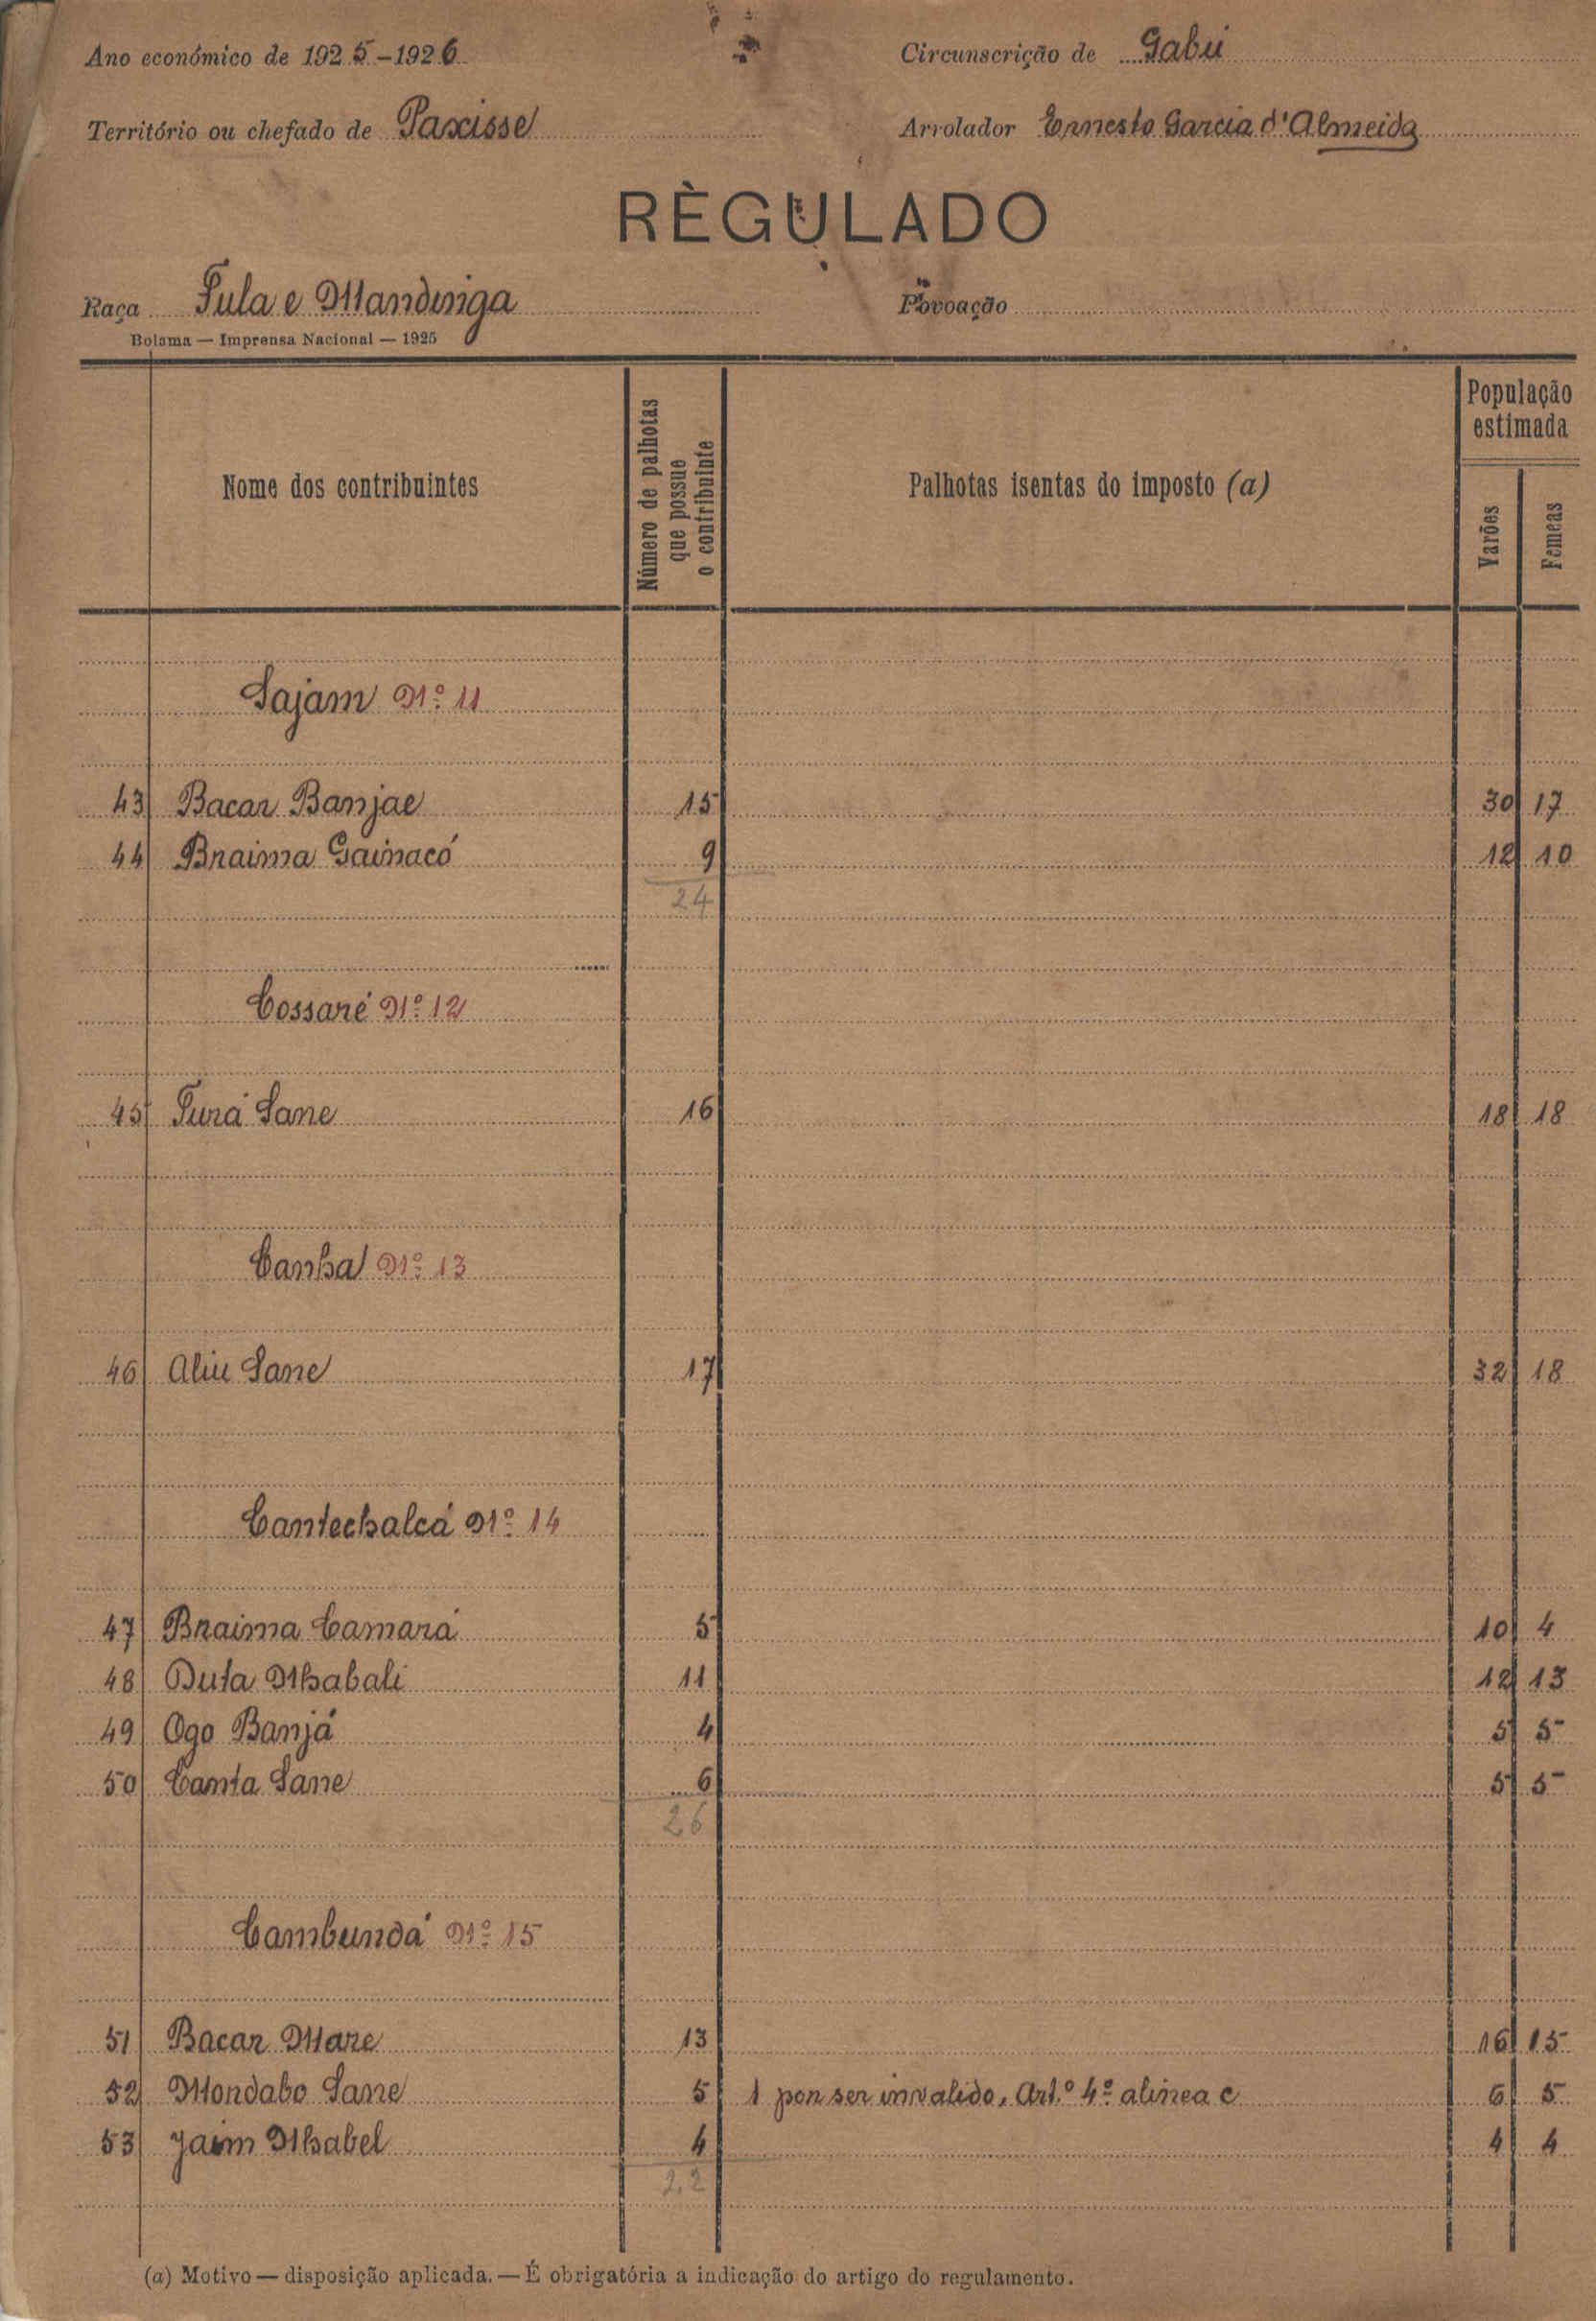 Ano económico de 1925-1926 Circunscrição de Gabú
Território ou chefado de Paxisse Arrolador Ernesto Garcia d'Almeida
RÈGULADO
Raça Fula e Mandinga Povoação
Bolama — Imprensa Nacional — 1925
Nome dos contribuintes
Número de palhotas que possue o contribuinte
Palhotas isentas do imposto (a)
População estimada
Varões
Femeas
Sajam Nº 11
43 Bacar Banjae 15 30 17
44 Braima Gainacó 9 12 10
24
Cossaré Nº 12
45 Furá Sane 16 18 18
Canha Nº 13
46 Aliu Sane 17 32 18
Cantechalcá Nº 14
47 Braima Camará 5 10 4
48 Duta Mhabali 11 12 13
49 Ogo Banjá 4 5 5
50 Camta Sane 6 5 5
26
Cambundá Nº 15
51 Bacar Mare 13 16 15
52 Mondabo Sane 5 1 por ser invalido, Art.º 4º alinea c 6 5
53 Jaim Mhabel 4 4 4
22
(a) Motivo — disposição aplicada. — É obrigatória a indicação do artigo do regulamento.